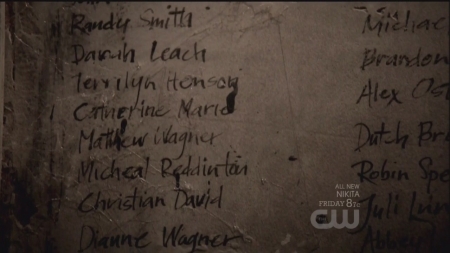 Randy Smith
Darah Leach
Terrilyn Henson
Catherine Marie
Matthew Wagner
Micheal Reddinton
Christian David
Dianne Wagner
Michae
Brandon
Alex Ost
Dutch Bra
Robin Spe
Juli Lun
Abbey
ALL NEW
NIKITA
FRIDAY 8/7c
CW